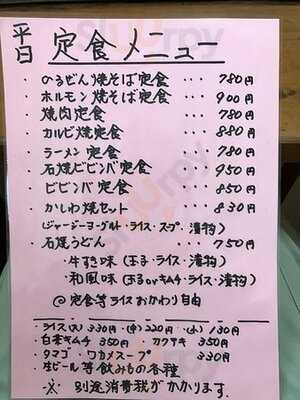 平日 定食メニュー
・のるどん焼そば定食 ・・・ 780円
・ホルモン焼そば定食 ・・・ 900円
・焼肉定食 ・・・ 780円
・カルビ焼定食 ・・・ 880円
・ラーメン定食 ・・・ 780円
・石焼ビビンバ定食 ・・・ 950円
・ビビンバ定食 ・・・ 850円
・かしわ焼セット ・・・ 830円
(ジャージーヨーグルト・ライス・スープ・漬物)
・石焼うどん ・・・ 750円
・牛すき味(玉子・ライス・漬物)
・和風味(玉子orキムチ・ライス・漬物)
@定食等ライスおかわり自由
・ライス(大)330円(中)220円(小)130円
・白菜キムチ 350円 カクテキ 350円
・タマゴ・ワカメスープ 330円
・生ビール等飲みもの各種
※ 別途消費税がかかります.